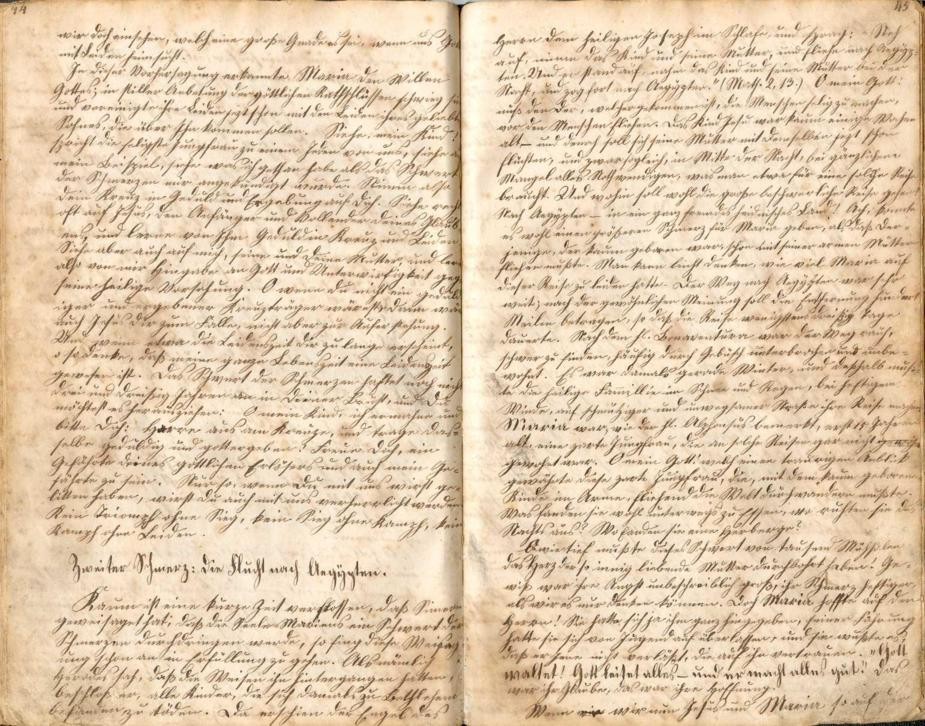 44
wir doch einsehen, welch eine große Gnade es sei, wenn uns Gott
mit Leiden heimsucht.
In dieser Vorhersagung erkannte Maria den Willen
Gottes; in stiller Anbetung der göttlichen Rathschlüsse schwieg sie
und vereinigte ihre Leiden jetzt schon mit den Leiden ihres geliebten
Sohnes, die über Ihn kommen sollen. Siehe, mein Kind,
spricht die seligste Jungfrau zu einem Jeden von uns, siehe
mein Beispiel, siehe was ich gethan habe als das Schwert
der Schmerzen mir angekündigt wurde. Nimm also
dein Kreuz in Geduld und Ergebung auf Dich. Siehe recht
oft auf Jesus, den Anfänger und Vollender deines Glaub
ens, und lerne von Ihm Geduld in Kreuz und Leiden.
Siehe aber auch auf mich, seine und Deine Mutter, und lerne
also von mir Hingabe an Gott und Unterwürfigkeit gegen
seine heilige Vorsehung. O wenn Du nicht ein gedul
iger und ergebener Kreuzträger wärest, dann wäre
auch Jesus Dir zum Falle, nicht aber zur Auferstehung.
Und wenn etwa die Leidenszeit dir zu lange erscheint,
o so denke, daß meine ganze Lebenszeit eine Leidenszeit
gewesen ist. Das Schwert der Schmerzen haftet noch nicht
drei und dreißig Jahren in Deiner Brust, und Du
möchtest es herausziehen? O mein Kind, ich ermahne und
bitte Dich: Harre aus am Kreuze, und trage das
selbe geduldig und gottergeben! Freue Dich, ein
Gefährte deines göttlichen Erlösers und auch mein Ge-
fährte zu sein. Nur so, wenn Du mit uns wirst ge
litten haben, wirst Du auch mit uns verherrlicht werden.
Kein Triumph ohne Sieg, kein Sieg ohne Kampf, kein
Kampf ohne Leiden.
Zweiter Schmerz: die Flucht nach Aegypten.
Kaum ist eine kurze Zeit verflossen, daß Simeon
geweissaget hat, daß die Seele Mariens ein Schwert der
Schmerzen durchdringen werde, so fing diese Weissag
ung schon an in Erfüllung zu gehen. Als nämlich
Herodes sah, daß die Weisen ihn hintergangen hatten,
beschloß er, alle Kinder, die sich damals zu Bethlehem
befanden zu töden. Da erschien der Engel des
45
Herrn dem heiligen Joseph im Schlafe, und sprach: „Steh
auf, nimm das Kind und seine Mutter, und fliehe nach Aegyp-
ten. Und er stand auf, nahm das Kind und seine Mutter bei der
Nacht, und zog fort nach Aegypten." (Math. 2, 13.) O mein Gott!
muß der Der, welcher gekommen ist, die Menschen selig zu machen,
vor den Menschen fliehen. Das Kind Jesu war kaum einige Wochen
alt – und dennoch soll sich seine Mutter mit demselben jetzt schon
flüchten, und zwar sogleich, in Mitte der Nacht, bei gänzlichem
Mangel alles Nothwendigen, was man etwa für eine solche Reise
braucht. Und wohin soll wohl die große beschwerliche Reise gehen?
Nach Aegypten – in ein ganz fremdes heidnisches Land! Ach, konnte
es wohl einen größeren Schmerz für Maria geben, als daß Der-
jenige, der kaum geboren war, schon mit seiner armen Mutter
fliehen mußte. Man kann leicht denken, wie viel Maria auf
dieser Reise zu leiden hatte. Der Weg nach Aegypten war sehr
weit; nach der gewöhnlichen Meinung soll die Entfernung hundert
Meilen betragen, so daß die Reise wenigstens dreißig Tage
dauerte. Nach dem hl. Bonaventura war der Weg rauh,
schwer zu finden, häufig durch Gebüsch unterbrochen und unbe-
wohnt. Es war damals gerade Winter, und deshalb muß-
te die heilige Familie in Schnee und Regen, bei heftigem
Winde, auf schmutziger und unwegsamer Straße ihre Reise machen.
Maria war, wie der hl. Alphonsus bemerkt, erst 15 Jahre
alt, eine zarte Jungfrau, die an solche Reisen gar nicht
gewohnt war. O mein Gott! welch einen traurigen Anblick
gewährte diese zarte Jungfrau, die, mit dem kaum geborenen
Kinde im Arme, fliehend die Welt durchwandern mußte.
Was fanden sie wohl unterwegs zu Essen, wo ruhten sie des
Nachts aus? Wo fanden sie eine Herberge?
Wie tief mußte dieses Schwert von tausend Mühsalen
das Herz der so innig liebende Mutter durchbohrt haben! Ge-
wiß war ihre Angst unbeschreiblich groß, ihr Schmerz heftiger,
als wir es nur denken können. Doch Maria hoffte auf den
Herrn! Sie hatte sich ja ihm ganz hingegeben, seiner Führung
hatte sie sich von Jugend auf überlassen, und sie wußte es,
daß er jene nicht verläßt, die auf ihn vertrauen. „Gott
waltet! Gott leitet alles – und er macht alles gut!" Das
war ihr Glaube, das war ihre Hoffnung.
Wenn wir nun Jesus und Maria so auf der